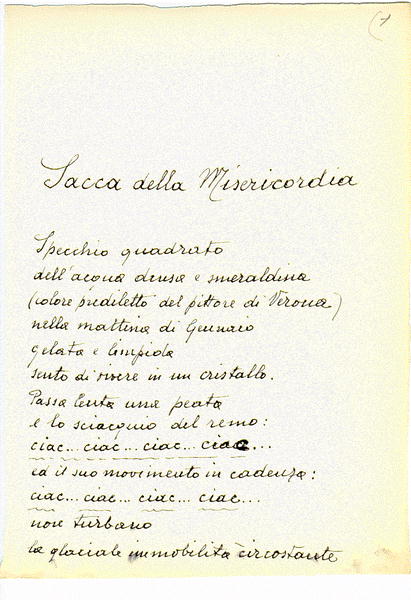 Sacca della Misericordia
Specchio quadrato
dell'acqua densa e smeraldina
(colore prediletto del pittore di Verona)
nella mattina di Gennaio
gelata e limpida
sento di vivere in un cristallo.
Passa lenta una peata
e lo sciacquio del remo:
ciac... ciac... ciac... ciac...
ed il suo movimento in cadenza:
ciac... ciac... ciac... ciac...
non turbano
la glaciale immobilità circostante